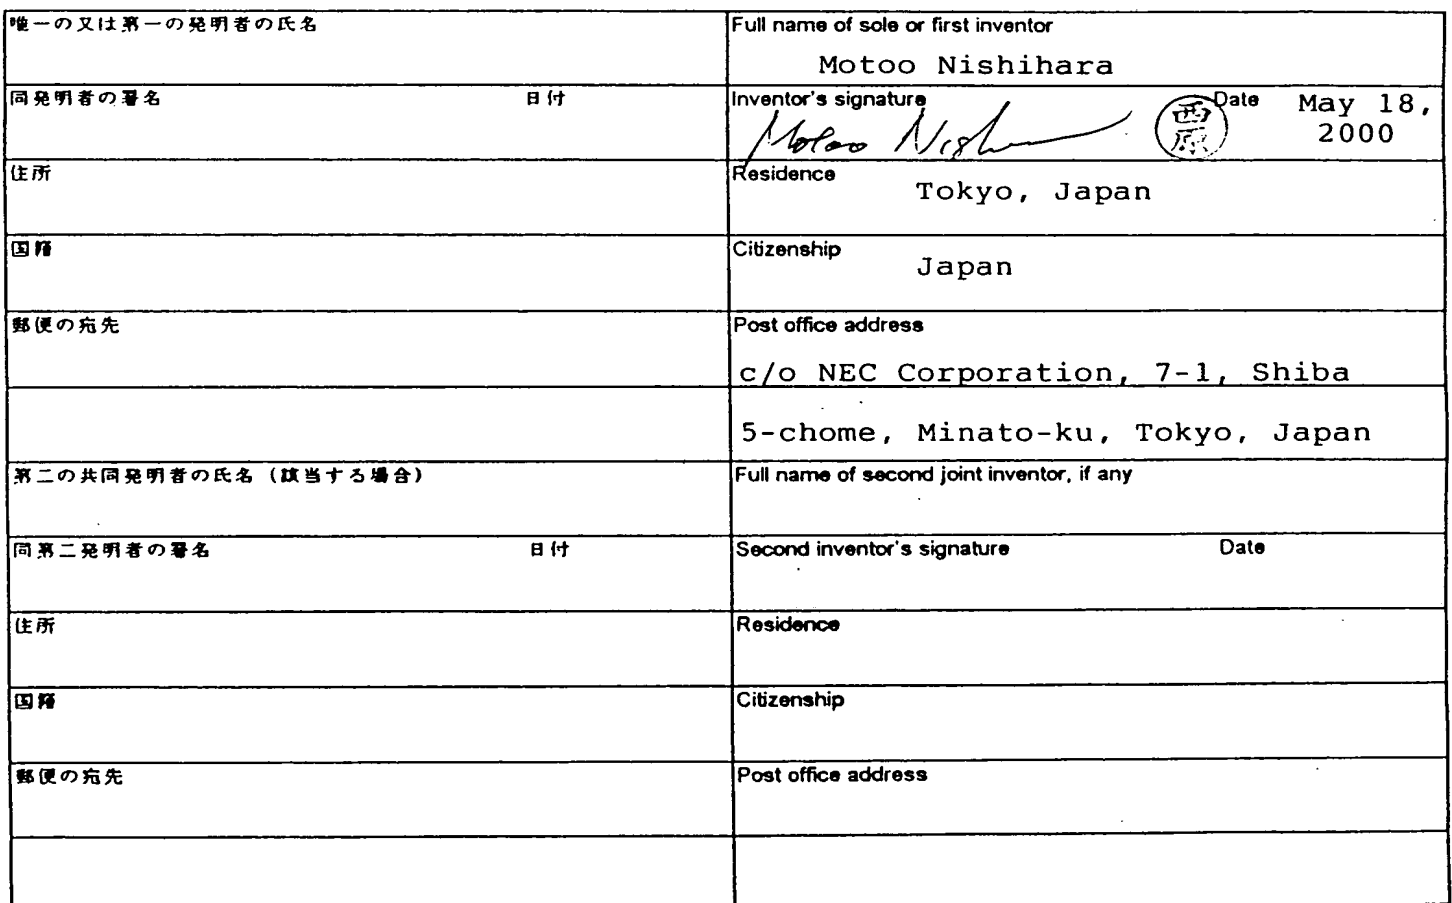 唯一の又は第一の発明者の氏名
Full name of sole or first inventor
Motoo Nishihara
同発明者の署名 日付
Inventor's signature Date May 18,
2000
Motoo Nish
西原
住所
Residence
Tokyo, Japan
国籍
Citizenship
Japan
郵便の宛先
Post office address
c/o NEC Corporation, 7-1, Shiba
5-chome, Minato-ku, Tokyo, Japan
第二の共同発明者の氏名(該当する場合)
Full name of second joint inventor, if any
同第二発明者の署名 日付
Second inventor's signature Date
住所
Residence
国籍
Citizenship
郵便の宛先
Post office address